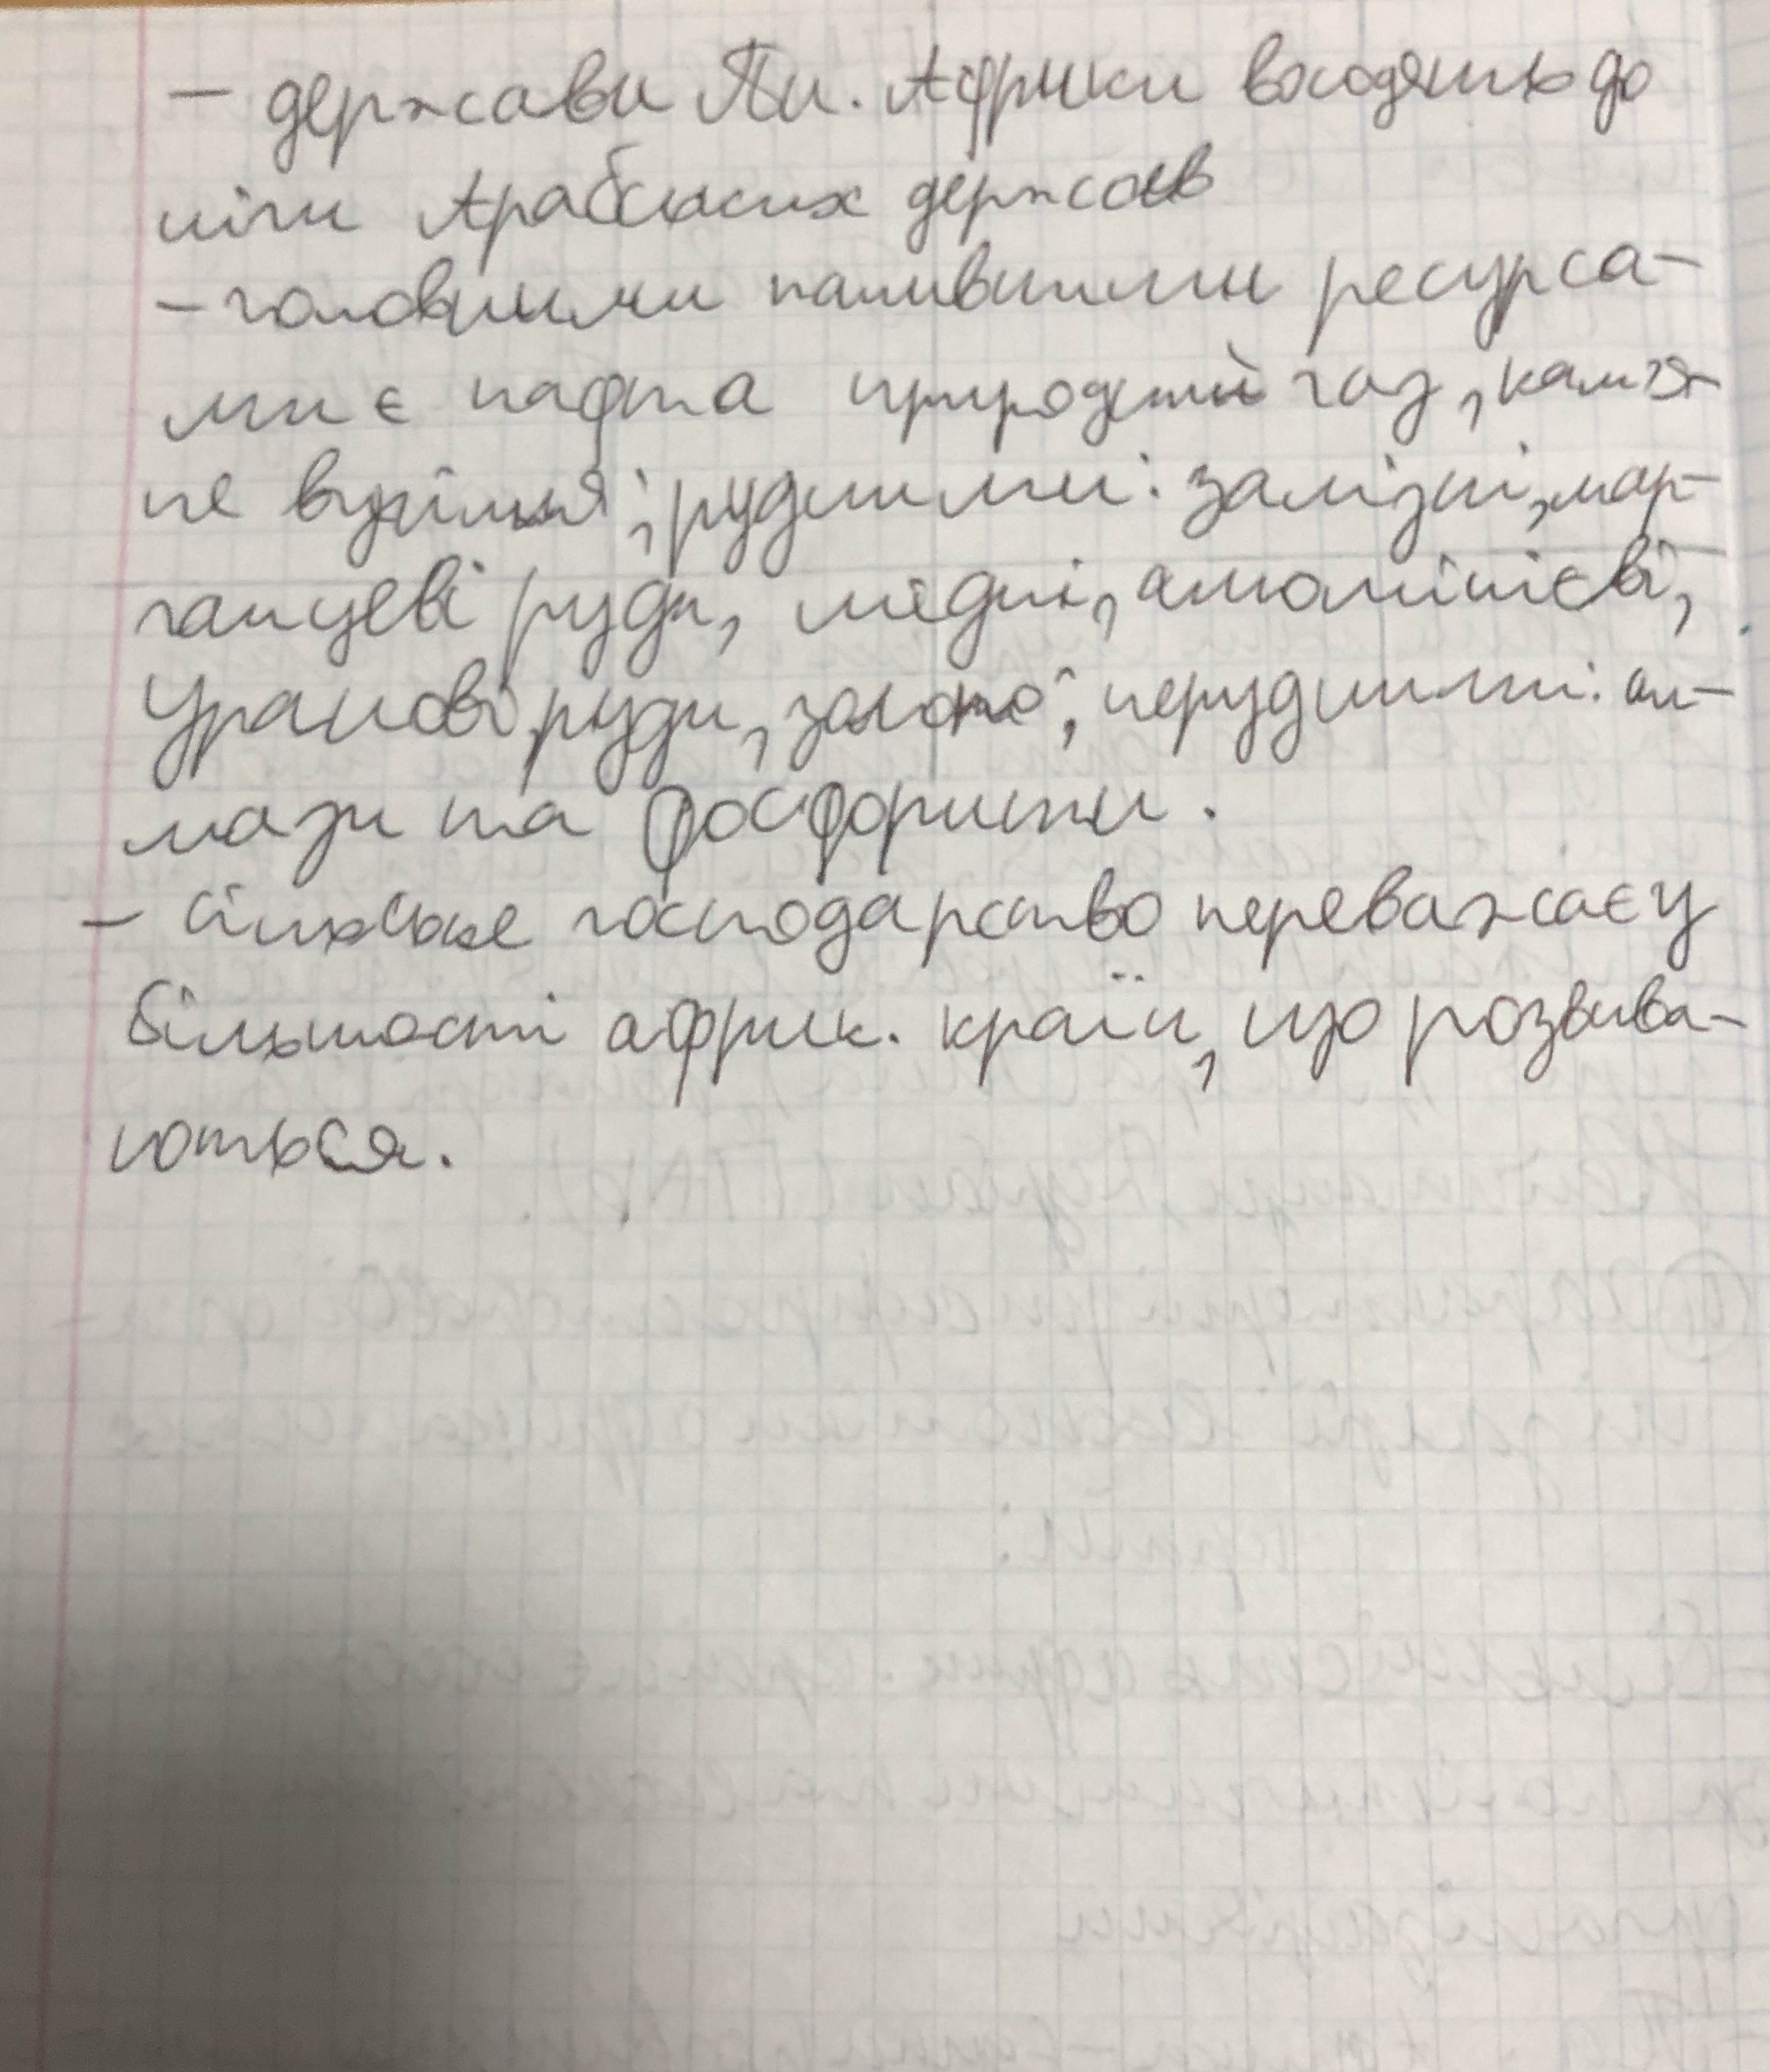 – держави Пн. Африки входять до
ліги Арабських держав
– головними паливними ресурса-
ми є нафта природний газ, кам'я-
не вугілля; рудними: залізні, мар-
ганцеві руди, мідні, алюмінієві,
уранові руди, золото; нерудними: ал-
мази та фосфорити.
– сільське господарство переважає у
більшості африк. країн, що розвива-
ються.